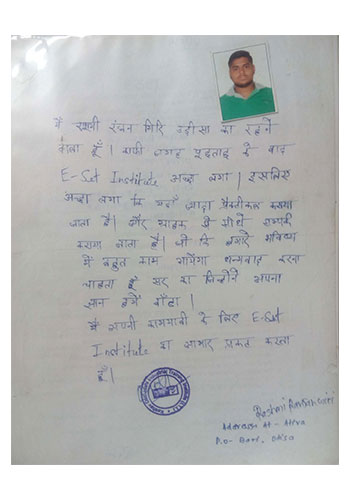 मैं रश्मी रंजन गिरि उड़ीसा का रहने
वाला हूँ । काफी जगह पूछताछ के बाद
E-Set Institute अच्छा लगा । इसलिए
अच्छा लगा कि यहाँ ज्यादा प्रैक्टीकल कराया
जाता है। और ग्राहक से सीधे सम्पर्क
कराया जाता है। जो कि हमारे भविष्य
में बहुत काम आयेगा धन्यवाद करना
चाहता हूँ सर का जिन्होंने अपना
ज्ञान हमें बाँटा ।
मैं अपनी कामयाबी के लिए E-Set
Institute का आभार प्रकट करता
हूँ।
Rashmi Ranjan Giri
At -
P.O -